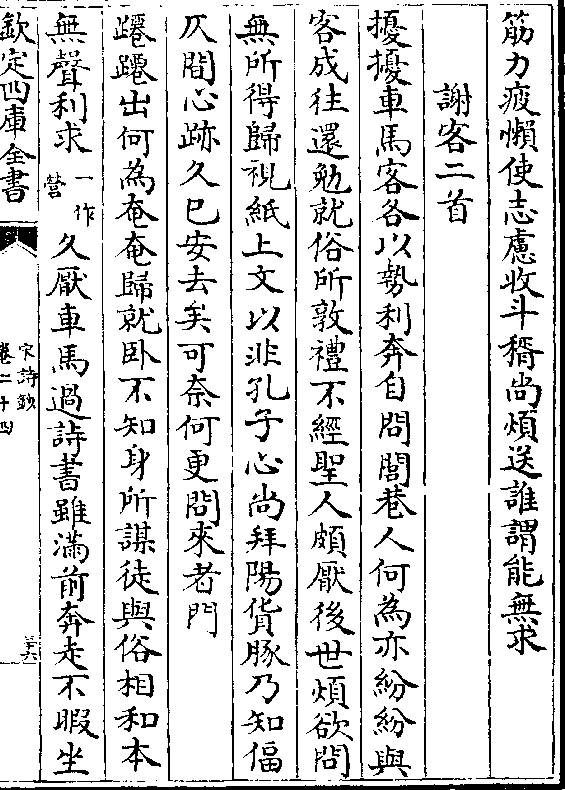 筋力疲懶使志慮收斗稰尚煩送誰謂能無求
謝客二首
擾擾車馬客各以勢利奔自問閭巷人何為亦紛紛與
客成往還勉就俗所敦禮不經聖人頗厭後世煩欲問
無所得歸視紙上文以非孔子心尚拜陽貨豚乃知偪
仄間心跡久已安去矣可奈何更問來者門
躚躚出何為奄奄歸就卧不知身所謀徒與俗相和本
無聲利求一作營久厭車馬過詩書雖滿前奔走不暇坐
欽定四庫全書
宋詩鈔
卷二十四